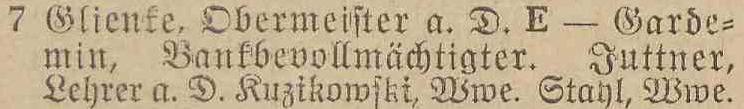 7 Glienke, Obermeister a. D. E — Garde-
min, Bankbevollmächtigter. Juttner,
Lehrer a. D. Kuzikowski, Wwe. Stahl, Wwe.